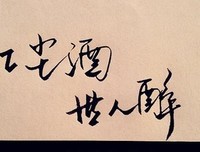 尘酒
世人醉